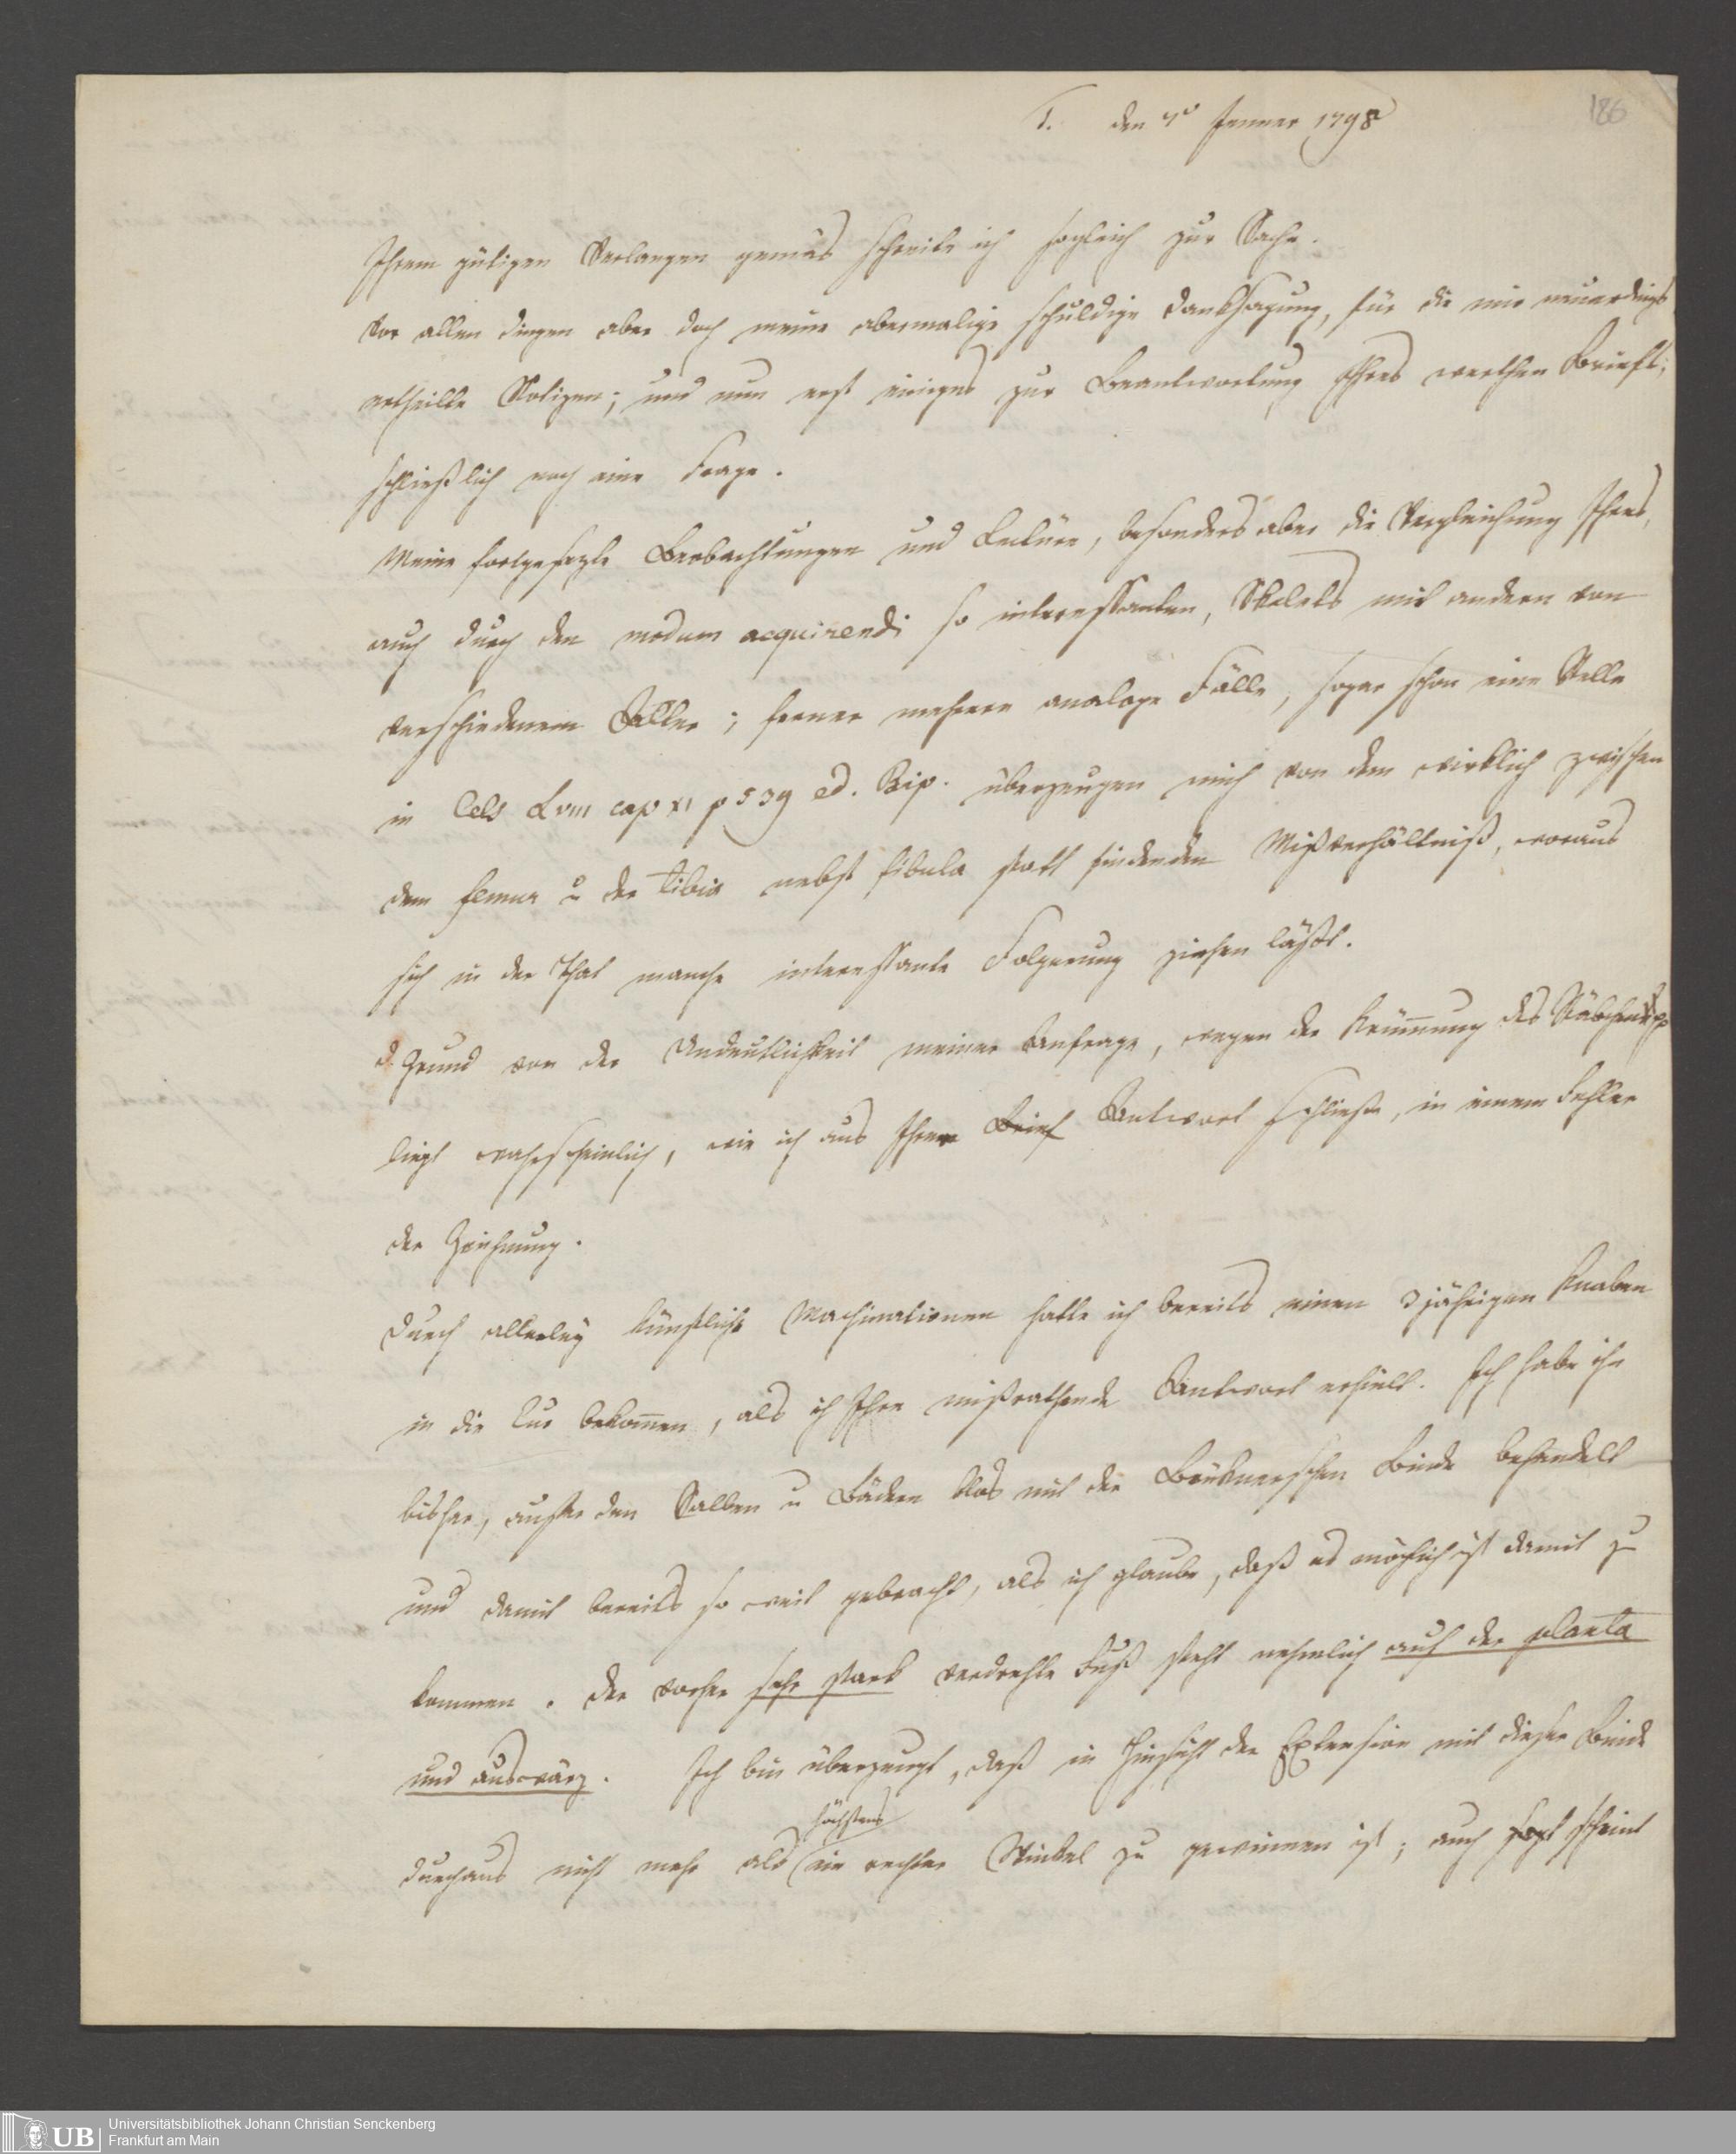 186
T. den 4ⁿ Jenner 1798
Ihrem gütigen Verlangen gemäs schreite ich sogleich zur Sache.
Vor allen Dingen aber doch meine abermalige schuldige Danksagung, für die mir neuerdings
ertheilte Notizen; und nun erst einiges zur Beantwortung Ihres werthen Briefs;
schließlich noch eine Frage.
Meine fortgesezte Beobachtungen und Lectüre, besonders aber die Vergleichung Ihres,
auch durch den modum acquirendi so interessanten, Skelets mit andern von
verschiedenem Alter; ferner mehrere analoge Fälle, sogar schon eine Stelle
in Cels L VIII cap XI p 539 ed. Bip. überzeugen mich von dem wirklich zwischen
dem femur u der tibia nebst fibula statt findenden Mißverhältniß, woraus
sich in der That manche interessante Folgerung ziehen läßt.
d. Grund von der Undeutlichkeit meiner Anfrage, wegen der Krümmung des
liegt wahrscheinlich, wie ich aus Ihrer Brief Antwort schließe, in einem Fehler
der Zeichnung.
Durch allerley künstliche Machinationen hatte ich bereits einen 3jährigen Knaben
in die Cur bekommen, als ich Ihre mißrathende Antwort erhielt. Ich habe ihn
bisher, außer den Salben u Bädern blos mit der Brüknerschen Binde behandelt
und damit bereits so weit gebracht, als ich glaube, daß es möglich ist damit zu
kommen. Der vorher sehr stark verdrehte Fuß steht nehmlich auf der planta
und auswärz. Ich bin überzeugt, daß in Hinsicht der Extension mit dieser Binde
höchstens
durchaus nicht mehr als ein rechter Winkel zu gewinnen ist; auch scheint
UB Universitätsbibliothek Johann Christian Senckenberg
Frankfurt am Main